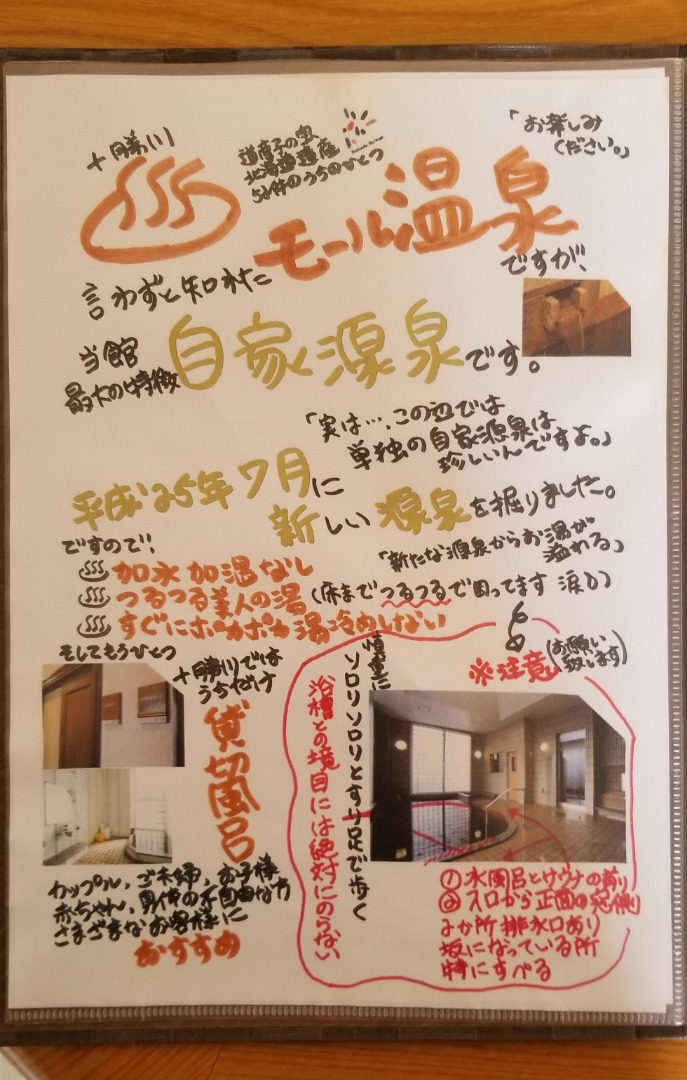 十勝川
道産子の宝
北海道遺産
51件のうちのひとつ
「お楽しみ
ください。」
モール温泉
言わずと知れた
ですが、
当館
最大の特徴
自家源泉です。
「実は…、この辺では
単独の自家源泉は
珍しいんですよ。」
平成25年7月に
新しい源泉を掘りました。
ですので！
「新たな源泉からお湯が
溢れる」
加水加温なし
つるつる美人の湯
(床までつるつるで困ってます 涙)
すぐにポカポカ湯冷めしない
そしてもうひとつ
十勝川では
うちだけ
貸切風呂
カップル、ご夫婦、お子様
赤ちゃん、身体の不自由な方
さまざまなお客様に
おすすめ
※注意
(お願い
致します)
慎重に
ソロリソロリとすり足で歩く
浴槽との境目には絶対にのらない
①水風呂とサウナの前り
②入口から正面の窓側
2か所排水口あり
坂になっている所
特にすべる